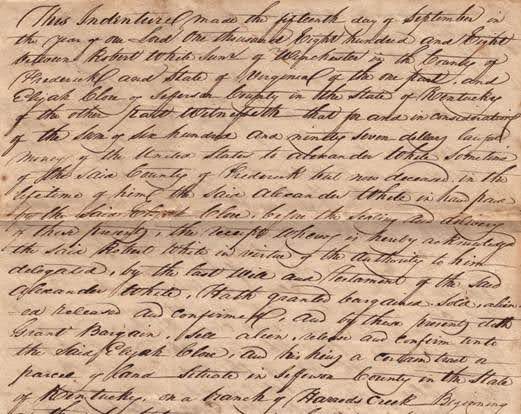 This Indenture made the fifteenth day of September in
the year of our Lord One thousand Eight hundred and Eight
between Robert White Senr of Winchester in the County of
Frederick and State of Virginia of the one part, and
Elijah Clore of Jefferson County in the State of Kentucky
of the other part Witnesseth that for and in consideration
of the sum of six hundred and ninety seven dollars lawful
money of the United States to Alexander White sometime
of the said County of Frederick but now deceased in the
lifetime of him the said Alexander White in hand paid
by the said Elijah Clore, before the sealing and delivery
of these presents, the receipt whereof is hereby acknowledged
the said Robert White in virtue of the authority to him
delegated, by the last Will and testament of the said
Alexander White, Hath granted bargained sold, alien
ed released and confirmed, and by these presents doth
Grant Bargain, sell alien, release and confirm unto
the said Elijah Clore, and his heirs a certain tract or
parcel of land situate in Jefferson County in the State
of Kentucky, on a branch of Harrods Creek Beginning